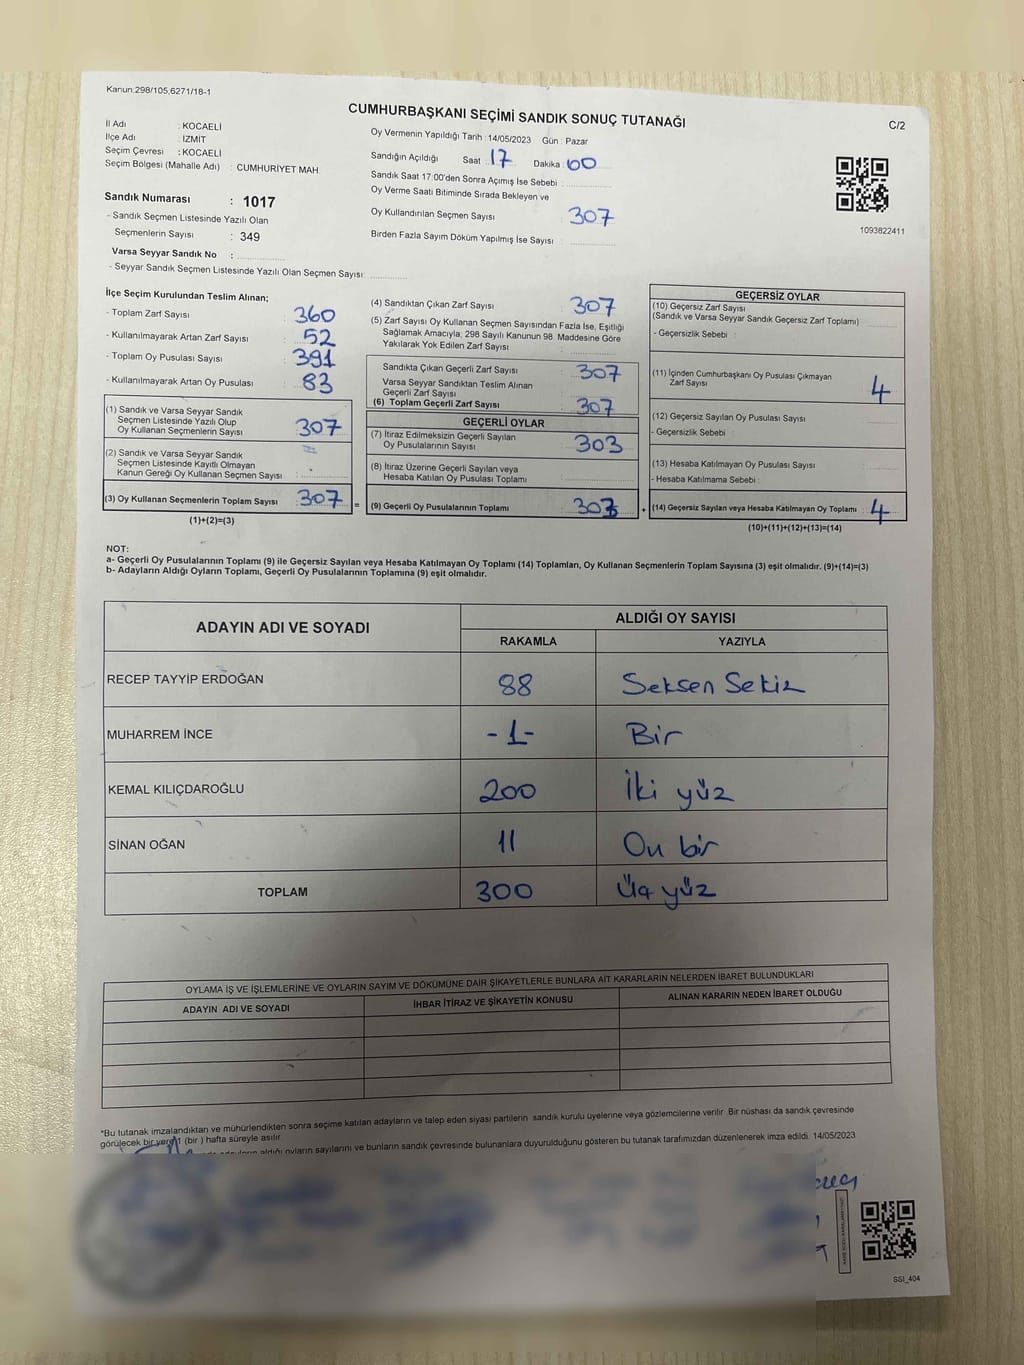 Kanun:298/105,6271/18-1
CUMHURBAŞKANI SEÇİMİ SANDIK SONUÇ TUTANAĞI
C/2
İl Adı : KOCAELİ
İlçe Adı : İZMİT
Seçim Çevresi : KOCAELİ
Seçim Bölgesi (Mahalle Adı) : CUMHURİYET MAH
Sandık Numarası : 1017
- Sandık Seçmen Listesinde Yazılı Olan
Seçmenlerin Sayısı : 349
Varsa Seyyar Sandık No :
- Seyyar Sandık Seçmen Listesinde Yazılı Olan Seçmen Sayısı:
Oy Vermenin Yapıldığı Tarih :14/05/2023 Gün : Pazar
Sandığın Açıldığı Saat : 17 Dakika : 00
Sandık Saat 17:00'den Sonra Açımış İse Sebebi :
Oy Verme Saati Bitiminde Sırada Bekleyen ve
Oy Kullandırılan Seçmen Sayısı : 307
Birden Fazla Sayım Döküm Yapılmış İse Sayısı :
1093822411
İlçe Seçim Kurulundan Teslim Alınan;
- Toplam Zarf Sayısı : 360
- Kullanılmayarak Artan Zarf Sayısı : 52
- Toplam Oy Pusulası Sayısı : 391
- Kullanılmayarak Artan Oy Pusulası : 83
(1) Sandık ve Varsa Seyyar Sandık
Seçmen Listesinde Yazılı Olup
Oy Kullanan Seçmenlerin Sayısı : 307
(2) Sandık ve Varsa Seyyar Sandık
Seçmen Listesinde Kayıtlı Olmayan
Kanun Gereği Oy Kullanan Seçmen Sayısı :
(3) Oy Kullanan Seçmenlerin Toplam Sayısı : 307
(1)+(2)=(3)
(4) Sandıktan Çıkan Zarf Sayısı : 307
(5) Zarf Sayısı Oy Kullanan Seçmen Sayısından Fazla İse, Eşitliği
Sağlamak Amacıyla; 298 Sayılı Kanunun 98. Maddesine Göre
Yakılarak Yok Edilen Zarf Sayısı :
Sandıkta Çıkan Geçerli Zarf Sayısı : 307
Varsa Seyyar Sandıktan Teslim Alınan
Geçerli Zarf Sayısı :
(6) Toplam Geçerli Zarf Sayısı : 307
GEÇERLİ OYLAR
(7) İtiraz Edilmeksizin Geçerli Sayılan
Oy Pusulalarının Sayısı : 303
(8) İtiraz Üzerine Geçerli Sayılan veya
Hesaba Katılan Oy Pusulası Toplamı :
= (9) Geçerli Oy Pusulalarının Toplamı : 303
GEÇERSİZ OYLAR
(10) Geçersiz Zarf Sayısı
(Sandık ve Varsa Seyyar Sandık Geçersiz Zarf Toplamı) :
- Geçersizlik Sebebi :
(11) İçinden Cumhurbaşkanı Oy Pusulası Çıkmayan
Zarf Sayısı : 4
(12) Geçersiz Sayılan Oy Pusulası Sayısı :
- Geçersizlik Sebebi :
(13) Hesaba Katılmayan Oy Pusulası Sayısı :
- Hesaba Katılmama Sebebi :
+ (14) Geçersiz Sayılan veya Hesaba Katılmayan Oy Toplamı : 4
(10)+(11)+(12)+(13)=(14)
NOT:
a- Geçerli Oy Pusulalarının Toplamı (9) ile Geçersiz Sayılan veya Hesaba Katılmayan Oy Toplamı (14) Toplamları, Oy Kullanan Seçmenlerin Toplam Sayısına (3) eşit olmalıdır. (9)+(14)=(3)
b- Adayların Aldığı Oyların Toplamı, Geçerli Oy Pusulalarının Toplamına (9) eşit olmalıdır.
ADAYIN ADI VE SOYADI
ALDIĞI OY SAYISI
RAKAMLA YAZIYLA
RECEP TAYYİP ERDOĞAN 88 Seksen Sekiz
MUHARREM İNCE -1- Bir
KEMAL KILIÇDAROĞLU 200 İki yüz
SİNAN OĞAN 11 On bir
TOPLAM 300 Üç yüz
OYLAMA İŞ VE İŞLEMLERİNE VE OYLARIN SAYIM VE DÖKÜMÜNE DAİR ŞİKAYETLERLE BUNLARA AİT KARARLARIN NELERDEN İBARET BULUNDUKLARI
ADAYIN ADI VE SOYADI İHBAR İTİRAZ VE ŞİKAYETİN KONUSU ALINAN KARARIN NEDEN İBARET OLDUĞU
*Bu tutanak imzalandıktan ve mühürlendikten sonra seçime katılan adayların ve talep eden siyasi partilerin sandık kurulu üyelerine veya gözlemcilerine verilir. Bir nüshası da sandık çevresinde
görülecek bir yere 1 (bir ) hafta süreyle asılır.
aldığı oyların sayılarını ve bunların sandık çevresinde bulunanlara duyurulduğunu gösteren bu tutanak tarafımızdan düzenlenerek imza edildi. 14/05/2023
SSI_404